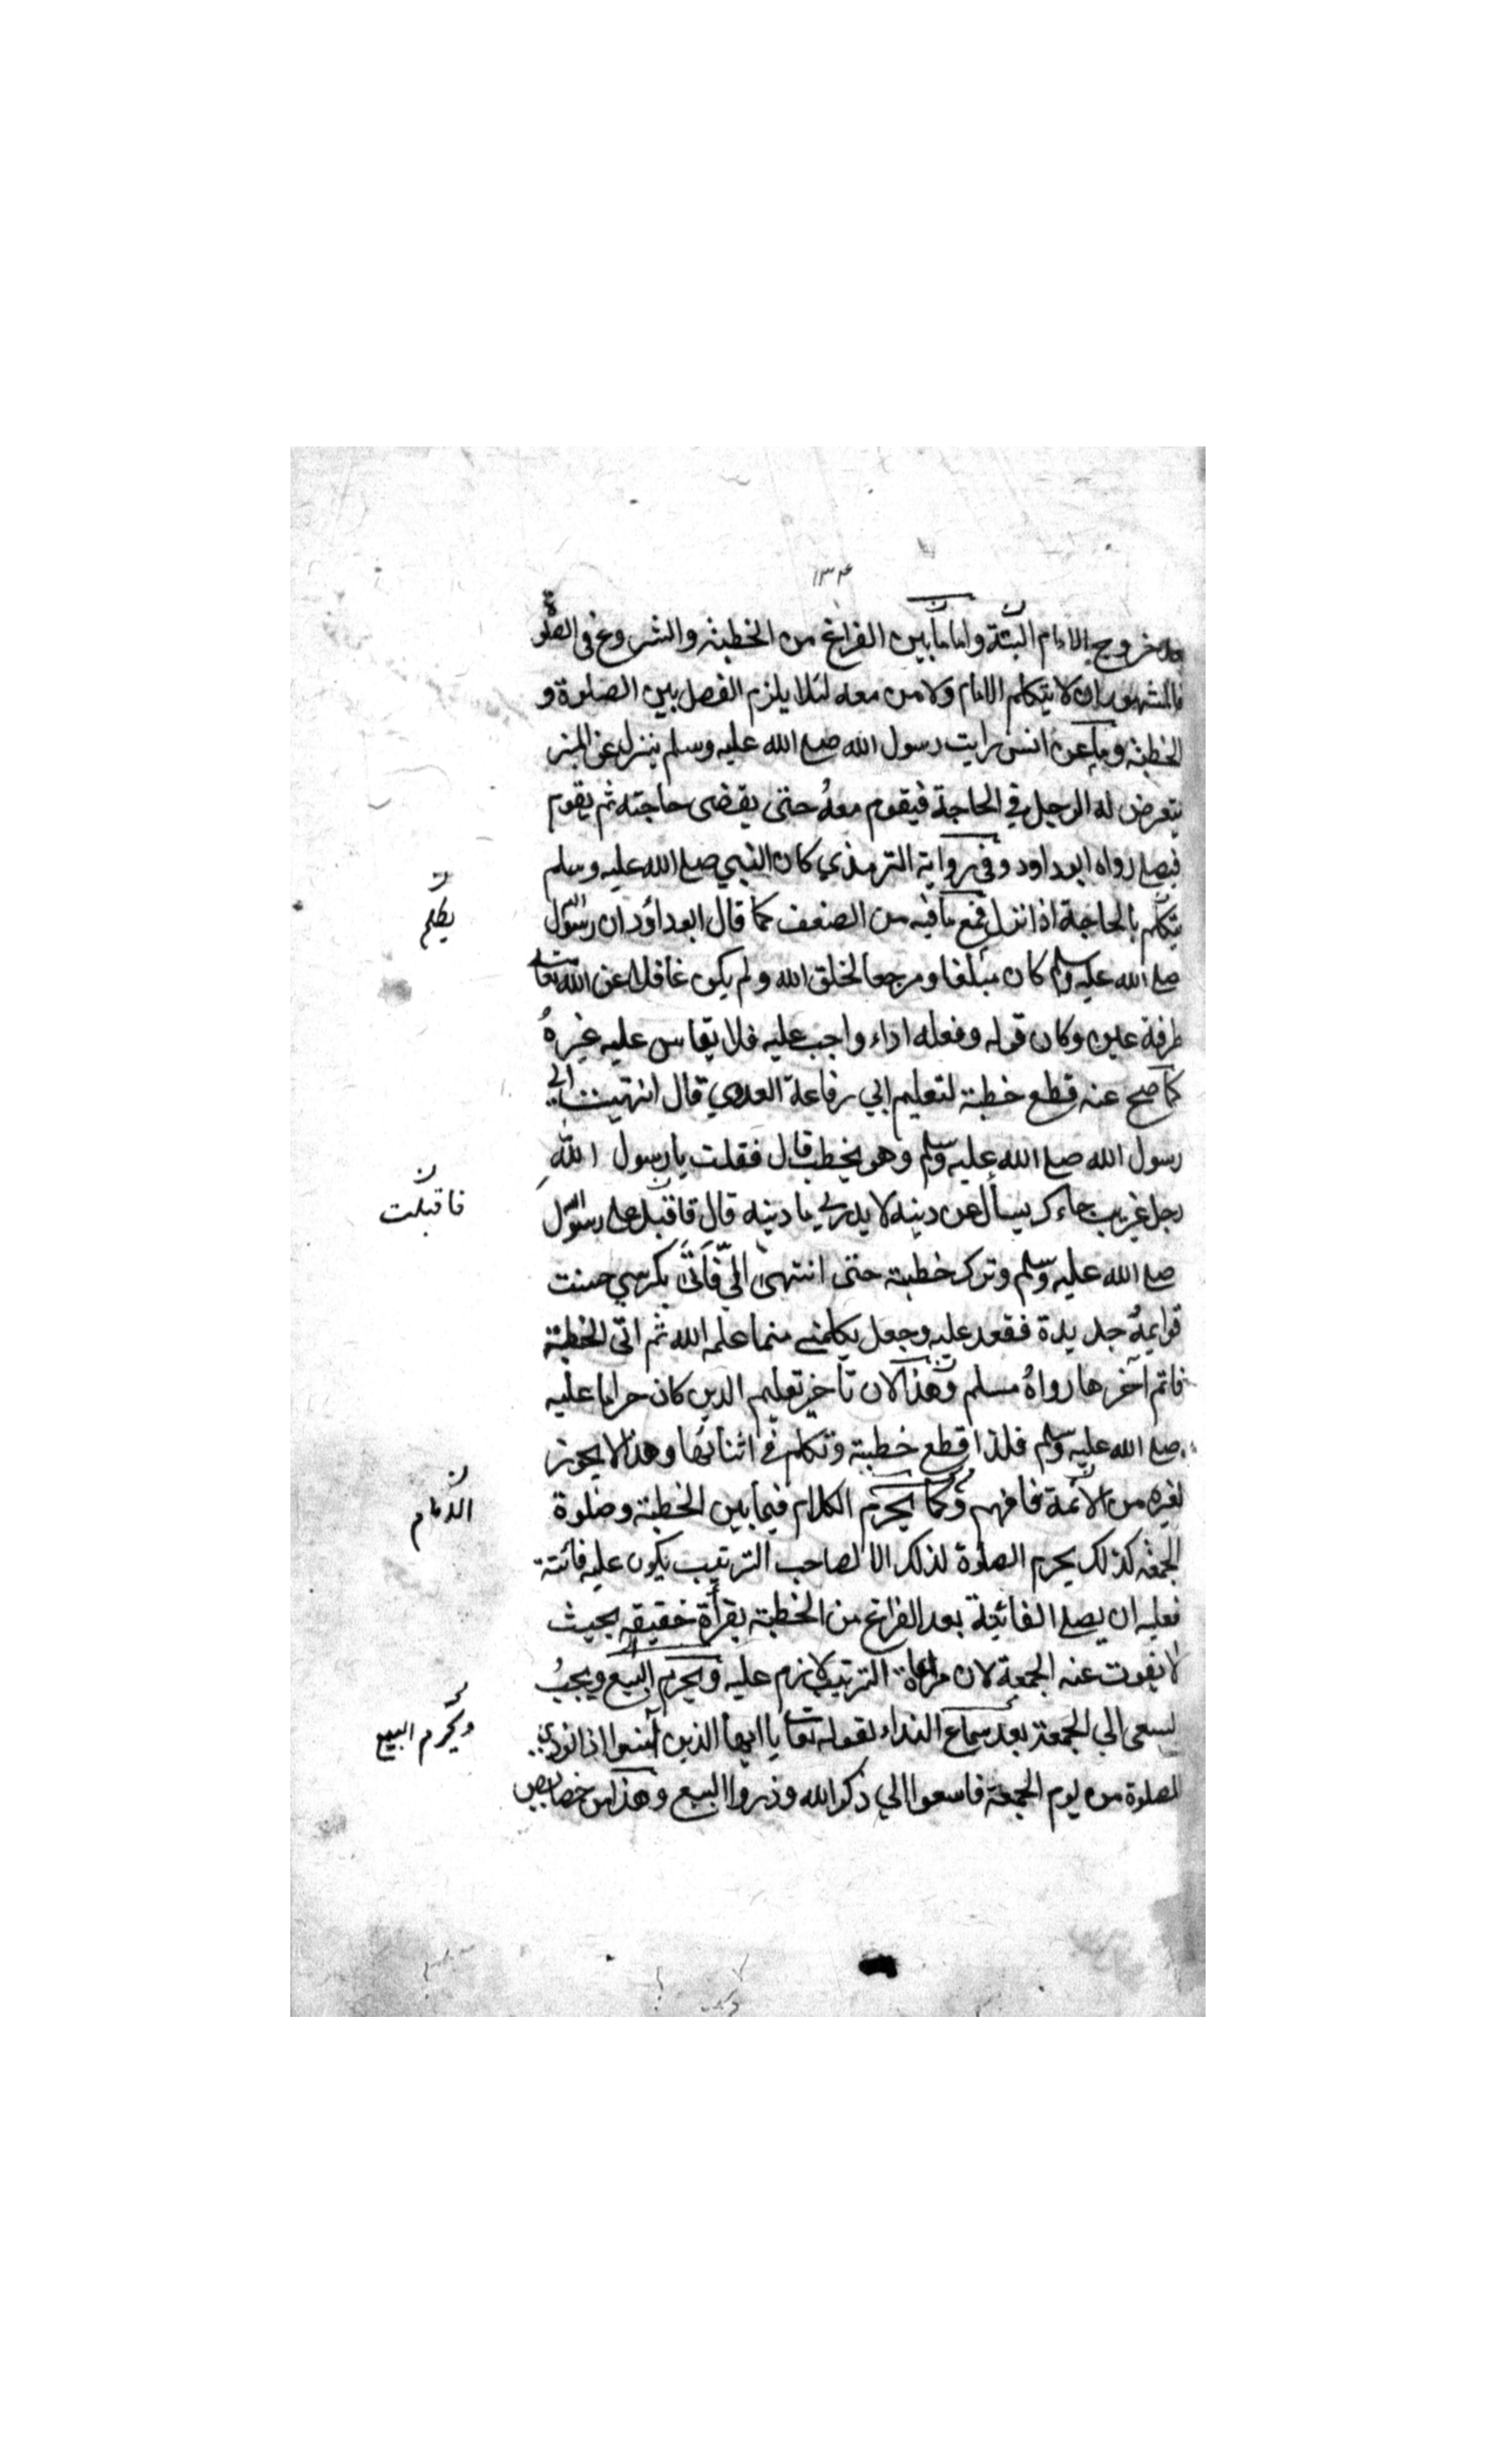 ١٣٤
خروج الامام البتة واما ما بين الفراغ من الخطبة والشروع فى الصلوة
فالمشهور ان لا يتكلم الامام ولا من معه لئلا يلزم الفصل بين الصلوة و
الخطبة وما عن انس رايت رسول الله صلع الله عليه وسلم ينزل عن المنبر
يتعرض له الرجل في الحاجة فيقوم معهُ حتى يقضى حاجته ثم يقوم
فيصلے رواه ابو داود وفى رواية الترمذي كان النبي صلع الله عليه وسلم
يتكلم بالحاجة اذا نزل فمع ما فيه من الضعف كما قال ابو داؤد ان رسول
صلع الله عليه وسلم كان مبلغا ومرجعا لخلق الله ولم يكن غافلا عن الله تعا
طرفة عين وكان قوله وفعله اداء واجب عليه فلا يقاس عليه غيرهُ
كما صح عنه قطع خطبة لتعليم ابي رفاعة العدوي قال انتهيت الى
رسول الله صلع الله عليه وسلم وهو يخطب قال فقلت يا رسول الله
رجل غريب جاءك يسأل عن دينه لا يدرى ما دينه قال فاقبل على رسول الله
صلع الله عليه وسلم وترك خطبة حتى انتهى الىّ فاتى بكرسي حسنت
قوايمهُ جديدة فقعد عليه وجعل يكلمنے منما علمه الله ثم اتى الخطبة
فاتم آخرها رواهُ مسلم وهذا لان تأخير تعليم الدين كان حراما عليه
صلع الله عليه وسلم فلذا قطع خطبة وتكلم فى اثنائها وهذا لا يجوز
لغيره من الائمة فافهم وكما يحرم الكلام فيما بين الخطبة وصلوة
الجمعة كذلك يحرم الصلوة لذلك الا لصاحب الترتيب يكون عليه فائتة
فعليه ان يصلے الفائتة بعد الفراغ من الخطبة بقرأة خفيفة بحيث
لا يفوت عنه الجمعة لان مراعاة الترتيب لازم عليه ويحرم البيع ويجبُ
السعى الي الجمعة بعد سماع النداء لقوله تعا يا ايها الذين آمنوا اذا نودى
للصلوة من يوم الجمعة فاسعوا الي ذكر الله وذروا البيع وهذا من خصايص
فاقبلت
الامام
ويحرم البيع